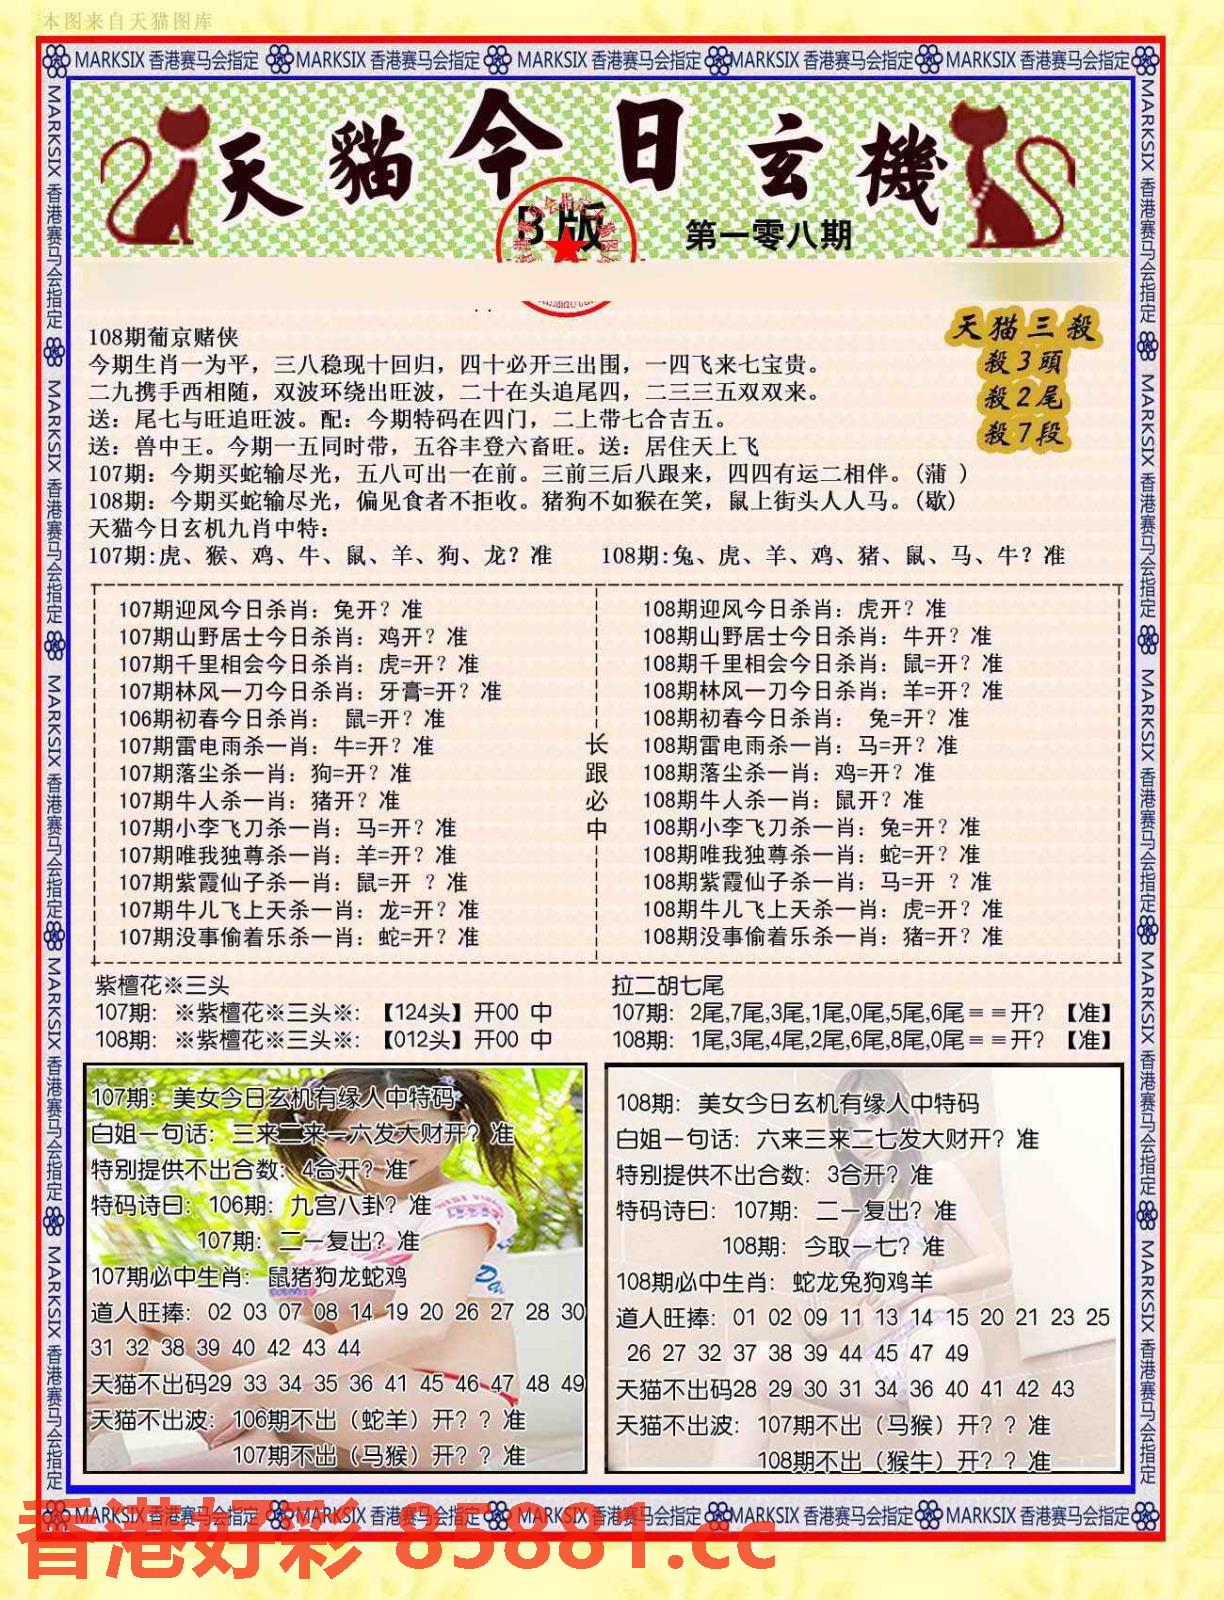 本图来自天猫图库
MARKSIX 香港赛马会指定 MARKSIX 香港赛马会指定 MARKSIX 香港赛马会指定 MARKSIX 香港赛马会指定 MARKSIX 香港赛马会指定
天貓今日玄機
B版
第一零八期
天猫三殺
殺3頭
殺2尾
殺7段
108期葡京赌侠
今期生肖一为平，三八稳现十回归，四十必开三出围，一四飞来七宝贵。
二九携手西相随，双波环绕出旺波，二十在头追尾四，二三三五双双来。
送：尾七与旺追旺波。配：今期特码在四门，二上带七合吉五。
送：兽中王。今期一五同时带，五谷丰登六畜旺。送：居住天上飞
107期：今期买蛇输尽光，五八可出一在前。三前三后八跟来，四四有运二相伴。(蒲 )
108期：今期买蛇输尽光，偏见食者不拒收。猪狗不如猴在笑，鼠上街头人人马。(歇)
天猫今日玄机九肖中特：
107期:虎、猴、鸡、牛、鼠、羊、狗、龙？准 108期:兔、虎、羊、鸡、猪、鼠、马、牛？准
107期迎风今日杀肖：兔开？准
107期山野居士今日杀肖：鸡开？准
107期千里相会今日杀肖：虎=开？准
107期林风一刀今日杀肖：牙膏=开？准
106期初春今日杀肖： 鼠=开？准
107期雷电雨杀一肖：牛=开？准
107期落尘杀一肖：狗=开？准
107期牛人杀一肖：猪开？准
107期小李飞刀杀一肖：马=开？准
107期唯我独尊杀一肖：羊=开？准
107期紫霞仙子杀一肖：鼠=开 ？准
107期牛儿飞上天杀一肖：龙=开？准
107期没事偷着乐杀一肖：蛇=开？准
长跟必中
108期迎风今日杀肖：虎开？准
108期山野居士今日杀肖：牛开？准
108期千里相会今日杀肖：鼠=开？准
108期林风一刀今日杀肖：羊=开？准
108期初春今日杀肖： 兔=开？准
108期雷电雨杀一肖：马=开？准
108期落尘杀一肖：鸡=开？准
108期牛人杀一肖：鼠开？准
108期小李飞刀杀一肖：兔=开？准
108期唯我独尊杀一肖：蛇=开？准
108期紫霞仙子杀一肖：马=开 ？准
108期牛儿飞上天杀一肖：虎=开？准
108期没事偷着乐杀一肖：猪=开？准
紫檀花※三头
107期: ※紫檀花※三头※: 【124头】开00 中
108期: ※紫檀花※三头※: 【012头】开00 中
拉二胡七尾
107期: 2尾,7尾,3尾,1尾,0尾,5尾,6尾＝＝开？【准】
108期: 1尾,3尾,4尾,2尾,6尾,8尾,0尾＝＝开？【准】
107期: 美女今日玄机有缘人中特码
白姐一句话: 三来二来一六发大财开？准
特别提供不出合数: 4合开？准
特码诗曰: 106期: 九宫八卦？准
107期: 二一复出？准
107期必中生肖: 鼠猪狗龙蛇鸡
道人旺捧: 02 03 07 08 14 19 20 26 27 28 30
31 32 38 39 40 42 43 44
天猫不出码29 33 34 35 36 41 45 46 47 48 49
天猫不出波: 106期不出（蛇羊）开？？准
107期不出（马猴）开？？准
108期: 美女今日玄机有缘人中特码
白姐一句话: 六来三来二七发大财开？准
特别提供不出合数: 3合开？准
特码诗曰: 107期: 二一复出？准
108期: 今取一七？准
108期必中生肖: 蛇龙兔狗鸡羊
道人旺捧: 01 02 09 11 13 14 15 20 21 23 25
26 27 32 37 38 39 44 45 47 49
天猫不出码28 29 30 31 34 36 40 41 42 43
天猫不出波: 107期不出（马猴）开？？准
108期不出（猴牛）开？？准
MARKSIX 香港赛马会指定 MARKSIX 香港赛马会指定 MARKSIX 香港赛马会指定 MARKSIX 香港赛马会指定 MARKSIX 香港赛马会指定
香港好彩 85881.cc
MARKSIX 香港赛马会指定 MARKSIX 香港赛马会指定 MARKSIX 香港赛马会指定 MARKSIX 香港赛马会指定 MARKSIX 香港赛马会指定
MARKSIX 香港赛马会指定 MARKSIX 香港赛马会指定 MARKSIX 香港赛马会指定 MARKSIX 香港赛马会指定 MARKSIX 香港赛马会指定